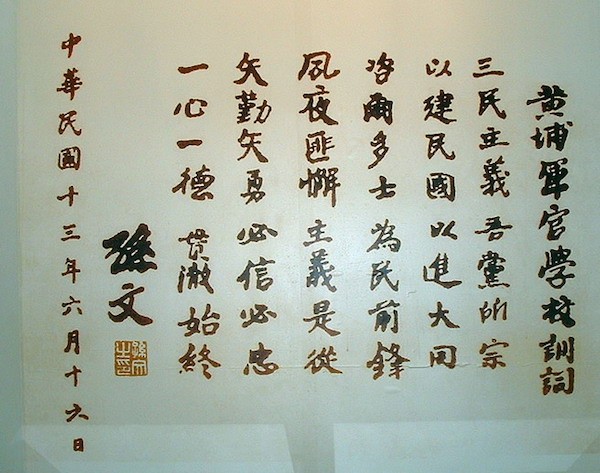 黃埔軍官學校訓詞
三民主義吾黨所宗
以建民國以進大同
咨爾多士為民前鋒
夙夜匪懈主義是從
矢勤矢勇必信必忠
一心一德貫澈始終
孫文
孫文之印
中華民國十三年六月十六日